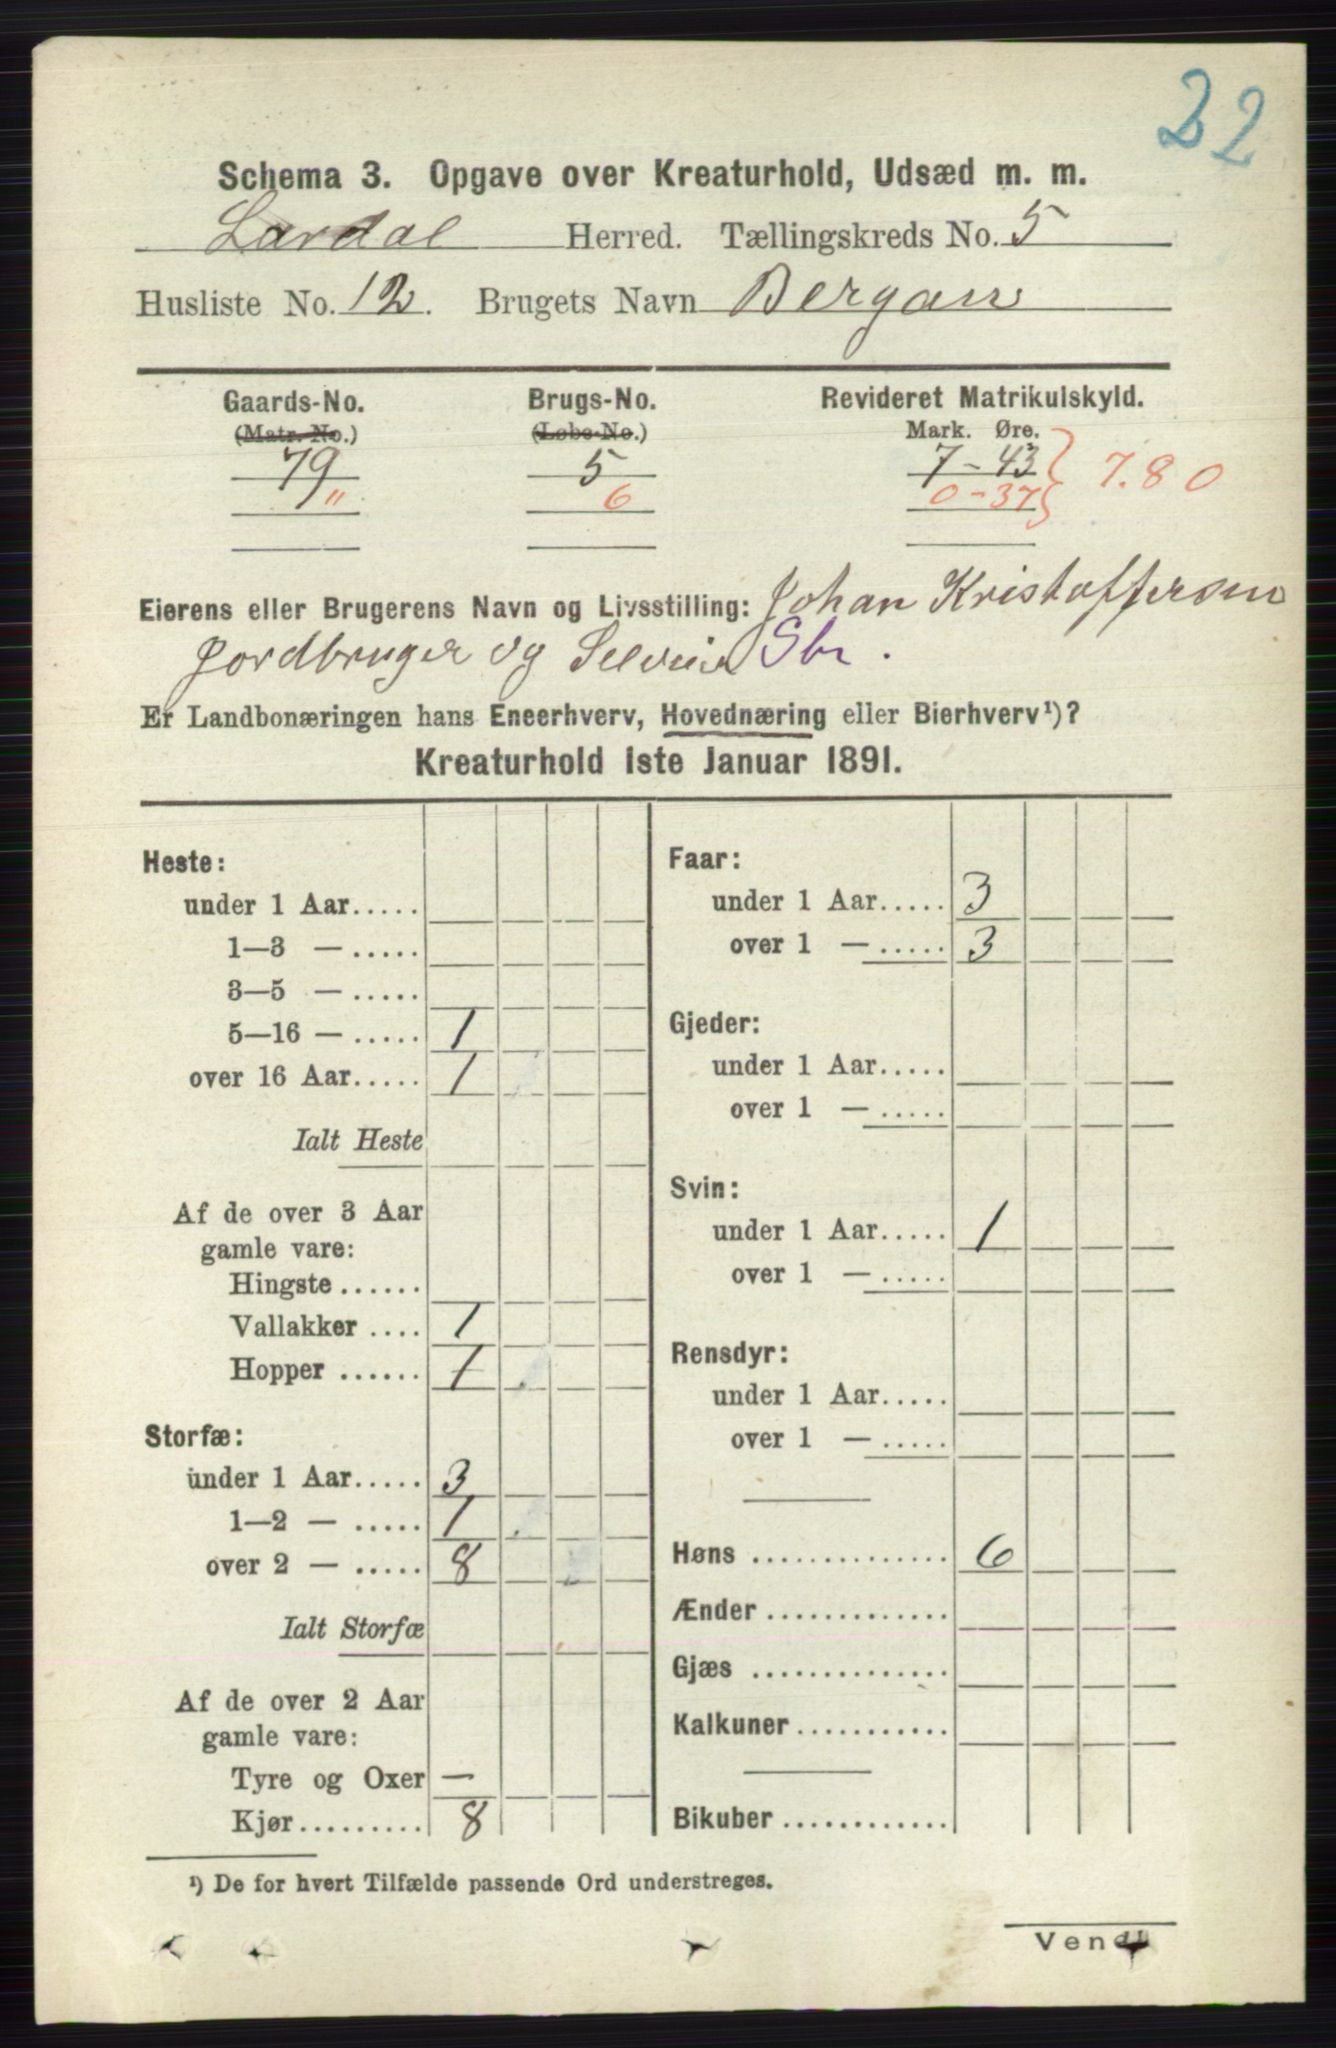 22
Schema 3. Opgave over Kreaturhold, Udsæd m. m.
Lardal Herred. Tællingskreds No. 5
Husliste No. 12. Brugets Navn Bergan
Gaards-No. Brugs-No. Revideret Matrikulskyld.
(Matr. No.) (Løbe-No.) Mark. Øre.
79 5 7-43 7.80
" 6 0-37
Eierens eller Brugerens Navn og Livsstilling: Johan Kristoffersen
Jordbruger og Selveier Sbr.
Er Landbonæringen hans Eneerhverv, Hovednæring eller Bierhverv¹)?
Kreaturhold 1ste Januar 1891.
Heste:
under 1 Aar.....
1—3 — .....
3—5 — .....
5—16 — ..... 1
over 16 Aar..... 1
Ialt Heste
Af de over 3 Aar
gamle vare:
Hingste ......
Vallakker .... 1
Hopper ...... 1
Storfæ:
under 1 Aar..... 3
1—2 — ..... 1
over 2 — ..... 8
Ialt Storfæ
Af de over 2 Aar
gamle vare:
Tyre og Oxer —
Kjør......... 8
Faar:
under 1 Aar..... 3
over 1 — ..... 3
Gjeder:
under 1 Aar.....
over 1 — .....
Svin:
under 1 Aar..... 1
over 1 — .....
Rensdyr:
under 1 Aar.....
over 1 — .....
Høns .............. 6
Ænder .............
Gjæs ..............
Kalkuner ...........
Bikuber ............
¹) De for hvert Tilfælde passende Ord understreges.
Vend!